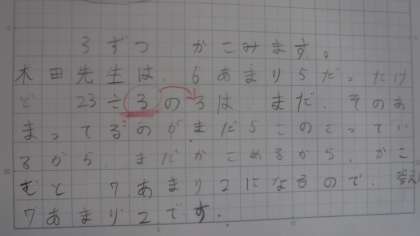 3ずつ かこみます。
木田先生は、6あまり5だ。だけ
ど 23÷3の3は まだ、そのあ
まってるのがまだ5このこってい
るから、まだかこめるから、かこ
むと、7あまり2になるので、答え
7あまり2です。